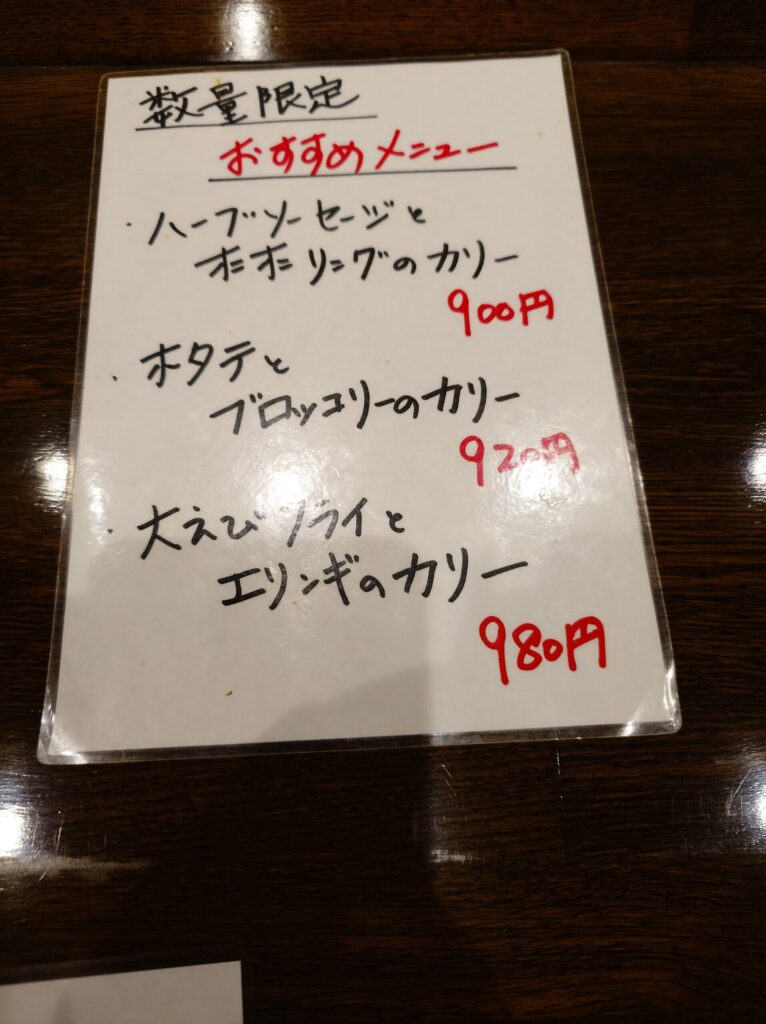 数量限定
おすすめメニュー
・ハーブソーセージと
ホホリングのカリー
900円
・ホタテと
ブロッコリーのカリー
920円
・大えびフライと
エリンギのカリー
980円